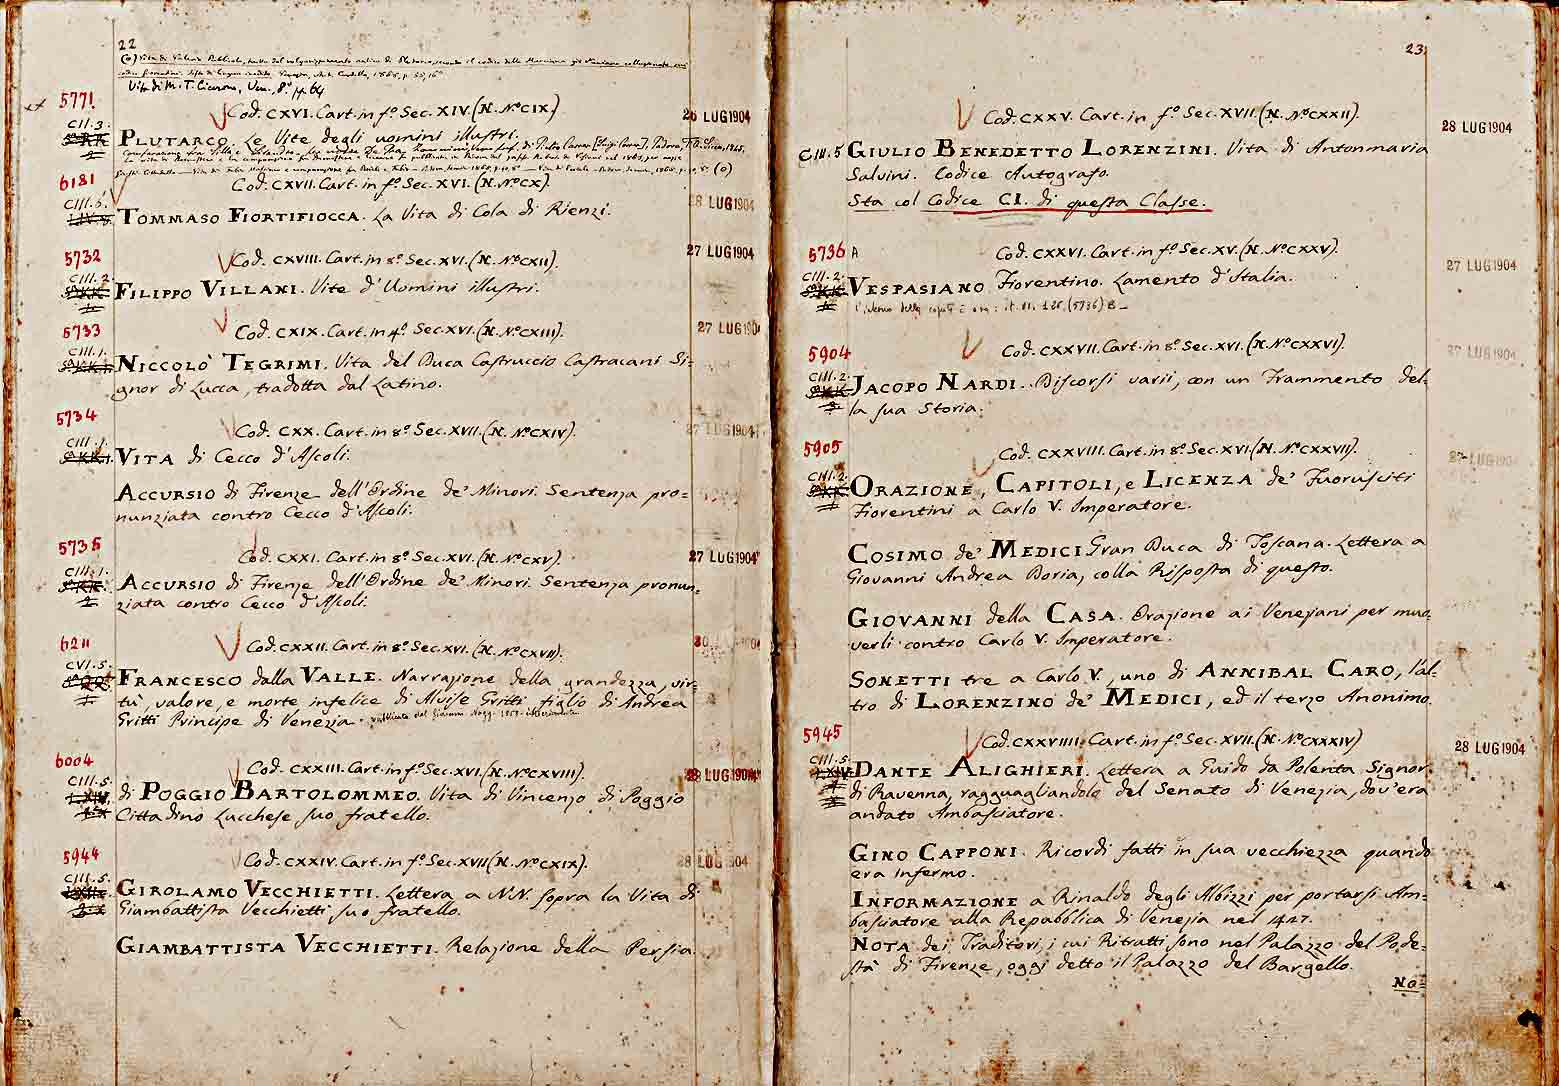 22
Vita di M. T. Cicerone, Ven., 8º. p. 64
5771
Cod. CXVI. Cart. in fº. Sec. XIV. (N. Nº CIX)
26 LUG 1904
CIII.3.
PLUTARCO. Le Vite degli uomini illustri.
6181
Cod. CXVII. Cart. in fº. Sec. XVI. (N. Nº CX).
28 LUG 1904
CIII.6.
TOMMASO FIORTIFIOCCA. La Vita di Cola di Rienzi.
5732
Cod. CXVIII. Cart. in 8º. Sec. XVI. (N. Nº CXII).
27 LUG 1904
CIII.2.
FILIPPO VILLANI. Vite d'Uomini illustri.
5733
Cod. CXIX. Cart. in 4º. Sec. XVI. (N. Nº CXIII).
27 LUG 190
CIII.1.
NICCOLÒ TEGRIMI. Vita del Duca Castruccio Castracani Si=
gnor di Lucca, tradotta dal Latino.
5734
Cod. CXX. Cart. in 8º. Sec. XVII. (N. Nº CXIV).
27 LUG 1904
CIII.1.
VITA di Cecco d'Ascoli.
ACCURSIO di Firenze dell'Ordine de' Minori. Sentenza pro=
nunziata contro Cecco d'Ascoli.
5735
Cod. CXXI. Cart. in 8º. Sec. XVI. (N. Nº CXV).
27 LUG 1904
CIII.1.
ACCURSIO di Firenze dell'Ordine de' Minori. Sentenza pronun=
ziata contro Cecco d'Ascoli.
6211
Cod. CXXII. Cart. in 8º. Sec. XVI. (N. Nº CXVII).
CVI.5.
FRANCESCO dalla VALLE. Narrazione della grandezza, vir=
tù, valore, e morte infelice di Aluise Gritti figlio di Andrea
Gritti Principe di Venezia.
6004
Cod. CXXIII. Cart. in fº. Sec. XVI. (N. Nº CXVIII).
28 LUG 1904
CIII.5.
di POGGIO BARTOLOMMEO. Vita di Vincenzo di Poggio
Cittadino Lucchese suo fratello.
5944
Cod. CXXIV. Cart. in fº. Sec. XVII (N. Nº CXIX).
28 LUG 1904
CIII.5.
GIROLAMO VECCHIETTI. Lettera a N.N. sopra la Vita di
Giambattista Vecchietti suo fratello.
GIAMBATTISTA VECCHIETTI. Relazione della Persia.
23
Cod. CXXV. Cart. in fº. Sec. XVII. (N. Nº CXXII).
28 LUG 1904
CIII.5
GIULIO BENEDETTO LORENZINI. Vita di Antonmaria
Salvini. Codice Autografo.
Sta col Codice CI. di questa Classe.
5736 A
Cod. CXXVI. Cart. in fº. Sec. XV. (N. Nº CXXV).
27 LUG 1904
CIII.2.
VESPASIANO Fiorentino. Lamento d'Italia.
5904
Cod. CXXVII. Cart. in 8º. Sec. XVI. (N. Nº CXXVI).
27 LUG 1904
CIII.2.
JACOPO NARDI. Discorsi varii, con un Frammento del=
la sua Storia.
5905
Cod. CXXVIII. Cart. in 8º. Sec. XVI. (N. Nº CXXVII).
27 LUG 1904
CIII.2.
ORAZIONE, CAPITOLI, e LICENZA de' Fuorusciti
Fiorentini a Carlo V. Imperatore.
COSIMO de' MEDICI Gran Duca di Toscana. Lettera a
Giovanni Andrea Doria, colla Risposta di questo.
GIOVANNI della CASA. Orazione ai Veneziani per muo=
verli contro Carlo V. Imperatore.
SONETTI tre a Carlo V., uno di ANNIBAL CARO, l'al=
tro di LORENZINO de' MEDICI, ed il terzo Anonimo.
5945
Cod. CXXVIIII. Cart. in fº. Sec. XVII. (N. Nº CXXXIV)
28 LUG 1904
CIII.5.
DANTE ALIGHIERI. Lettera a Guido da Polenta Signor
di Ravenna, ragguagliandolo del Senato di Venezia, dov'era
andato Ambasciatore.
GINO CAPPONI. Ricordi fatti in sua vecchiezza quando
era infermo.
INFORMAZIONE a Rinaldo degli Albizzi per portarsi Am=
basciatore alla Repubblica di Venezia nel 1427.
NOTA dei Traditori, i cui Ritratti sono nel Palazzo del Pode=
stà di Firenze, oggi detto il Palazzo del Bargello.
NO=